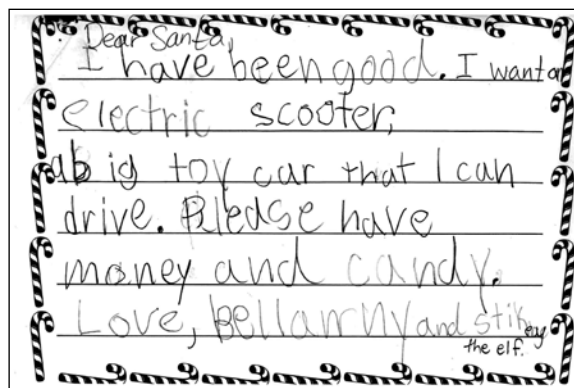 Dear Santa,
I have been good. I want an
electric scooter,
a big toy car that I can
drive. Please have
money and candy.
Love, and
the elf.